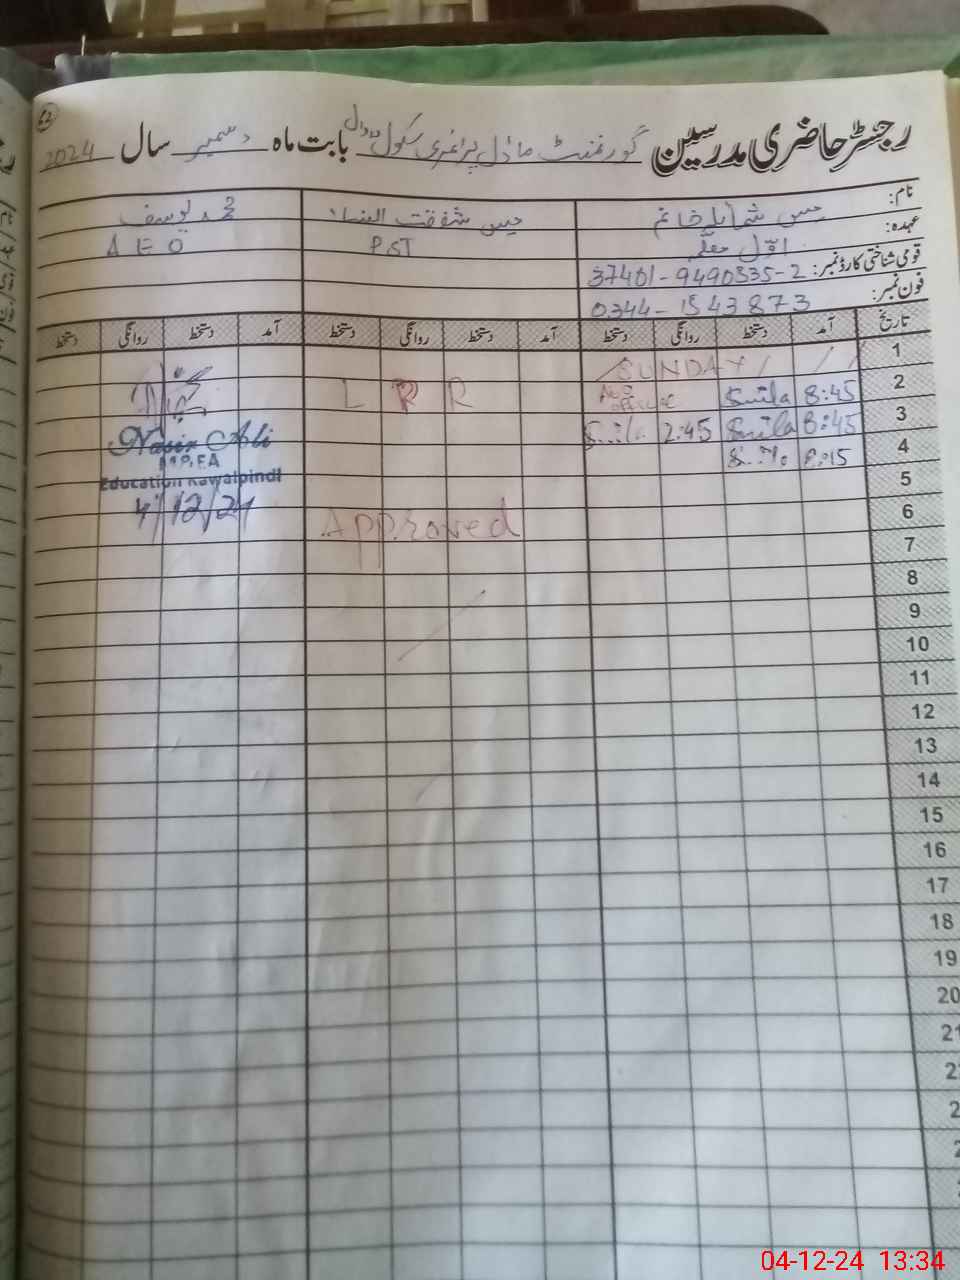 62
رجسٹر حاضری مدرسین گورنمنٹ ماڈل پرائمری سکول بابت ماہ دسمبر سال 2024
نام: مس شمائلہ خانم مس شفقت النساء محمد یوسف
عہدہ: اوّل معلمہ PST AEO
قومی شناختی کارڈ نمبر: 37401-9490535-2
فون نمبر: 0344-1543873
تاریخ آمد دستخط روانگی دستخط آمد دستخط روانگی دستخط آمد دستخط روانگی دستخط
1 SUNDAY
2 8:45 Smila L R R
3 8:45 Smila 2:45
4
5
6
7
8
9
10
11
12
13
14
15
16
17
18
19
20
Nasir Ali
Education Rawalpindi
4/12/24
Approved
04-12-24 13:34